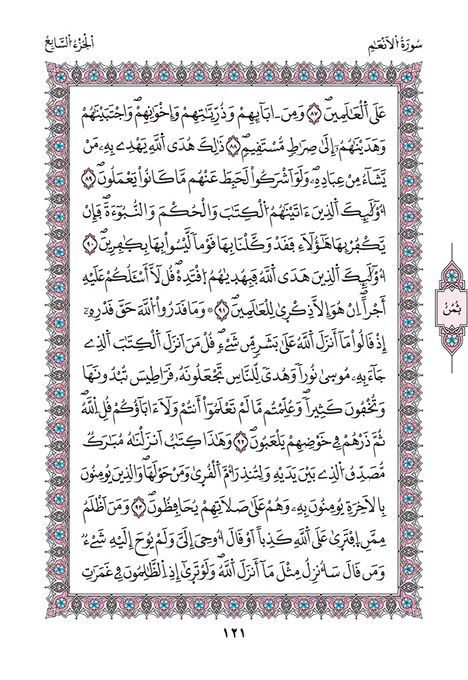 سُورَةُ الْأَنْعَامِ
الْجُزْءُ السَّابِعُ
عَلَى اَ۬لْعَٰلَمِينَۖ ٨٧ وَمِنَ اٰبَآئِهِمْ وَذُرِّيَّٰتِهِمْ وَإِخْوَٰنِهِمْۖ وَاجْتَبَيْنَٰهُمْ
وَهَدَيْنَٰهُمُۥٓ إِلَىٰ صِرَٰطٖ مُّسْتَقِيمٖۖ ٨٨ ذَٰلِكَ هُدَى اَ۬للَّهِ يَهْدِے بِهِۦ مَنْ
يَّشَآءُ مِنْ عِبَادِهِۦۖ وَلَوَ اَشْرَكُواْ لَحَبِطَ عَنْهُم مَّا كَانُواْ يَعْمَلُونَۖ ٨٩
أُوْلَٰٓئِكَ اَ۬لذِينَ ءَاتَيْنَٰهُمُ اُ۬لْكِتَٰبَ وَالْحُكْمَ وَالنُّبُوٓءَةَۖ فَإِنْ
يَّكْفُرْ بِهَا هَٰٓؤُلَآءِ فَقَدْ وَكَّلْنَا بِهَا قَوْماٗ لَّيْسُواْ بِهَا بِكَٰفِرِينَۖ ٩٠
أُوْلَٰٓئِكَ اَ۬لذِينَ هَدَى اَ۬للَّهُ فَبِهُدَيٰهُمُ اُ۪قْتَدِهْۖ قُل لَّآ أَسْـَٔلُكُمْ عَلَيْهِ
أَجْراًۖ اِنْ هُوَ إِلَّا ذِكْر۪ىٰ لِلْعَٰلَمِينَۖ ٩١ وَمَا قَدَرُواْ اُ۬للَّهَ حَقَّ قَدْرِهِۦٓ
إِذْ قَالُواْ مَآ أَنزَلَ اَ۬للَّهُ عَلَىٰ بَشَرٖ مِّن شَےْءٖۖ قُلْ مَنَ اَنزَلَ اَ۬لْكِتَٰبَ اَ۬لذِے
جَآءَ بِهِۦ مُوسَىٰ نُوراٗ وَهُدىٗ لِّلنَّاسِ تَجْعَلُونَهُۥ قَرَاطِيسَ تُبْدُونَهَا
وَتُخْفُونَ كَثِيراٗۖ وَعُلِّمْتُم مَّا لَمْ تَعْلَمُوٓاْ أَنتُمْ وَلَآ ءَابَآؤُكُمْ قُلِ اِ۬للَّهُۖ
ثُمَّ ذَرْهُمْ فِے خَوْضِهِمْ يَلْعَبُونَۖ ٩٢ وَهَٰذَا كِتَٰبٌ اَنزَلْنَٰهُ مُبَٰرَكٞ
مُّصَدِّقُ اُ۬لذِے بَيْنَ يَدَيْهِ وَلِتُنذِرَ أُمَّ اَ۬لْقُر۪ىٰ وَمَنْ حَوْلَهَاۖ وَالذِينَ يُومِنُونَ
بِالَاخِرَةِ يُومِنُونَ بِهِۦۖ وَهُمْ عَلَىٰ صَلَاتِهِمْ يُحَافِظُونَۖ ٩٣ وَمَنَ اَظْلَمُ
مِمَّنِ اِ۪فْتَر۪ىٰ عَلَى اَ۬للَّهِ كَذِباً اَوْ قَالَ أُوحِيَ إِلَيَّ وَلَمْ يُوحَ إِلَيْهِ شَےْءٞ
وَمَن قَالَ سَأُنزِلُ مِثْلَ مَآ أَنزَلَ اَ۬للَّهُۖ وَلَوْ تَر۪ىٰٓ إِذِ اِ۬لظَّٰلِمُونَ فِے غَمَرَٰتِ
ثُمُنُ
١٢١